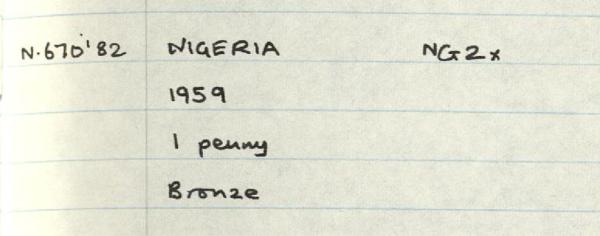 N.670'82 NIGERIA NG2x
1959
1 penny
Bronze